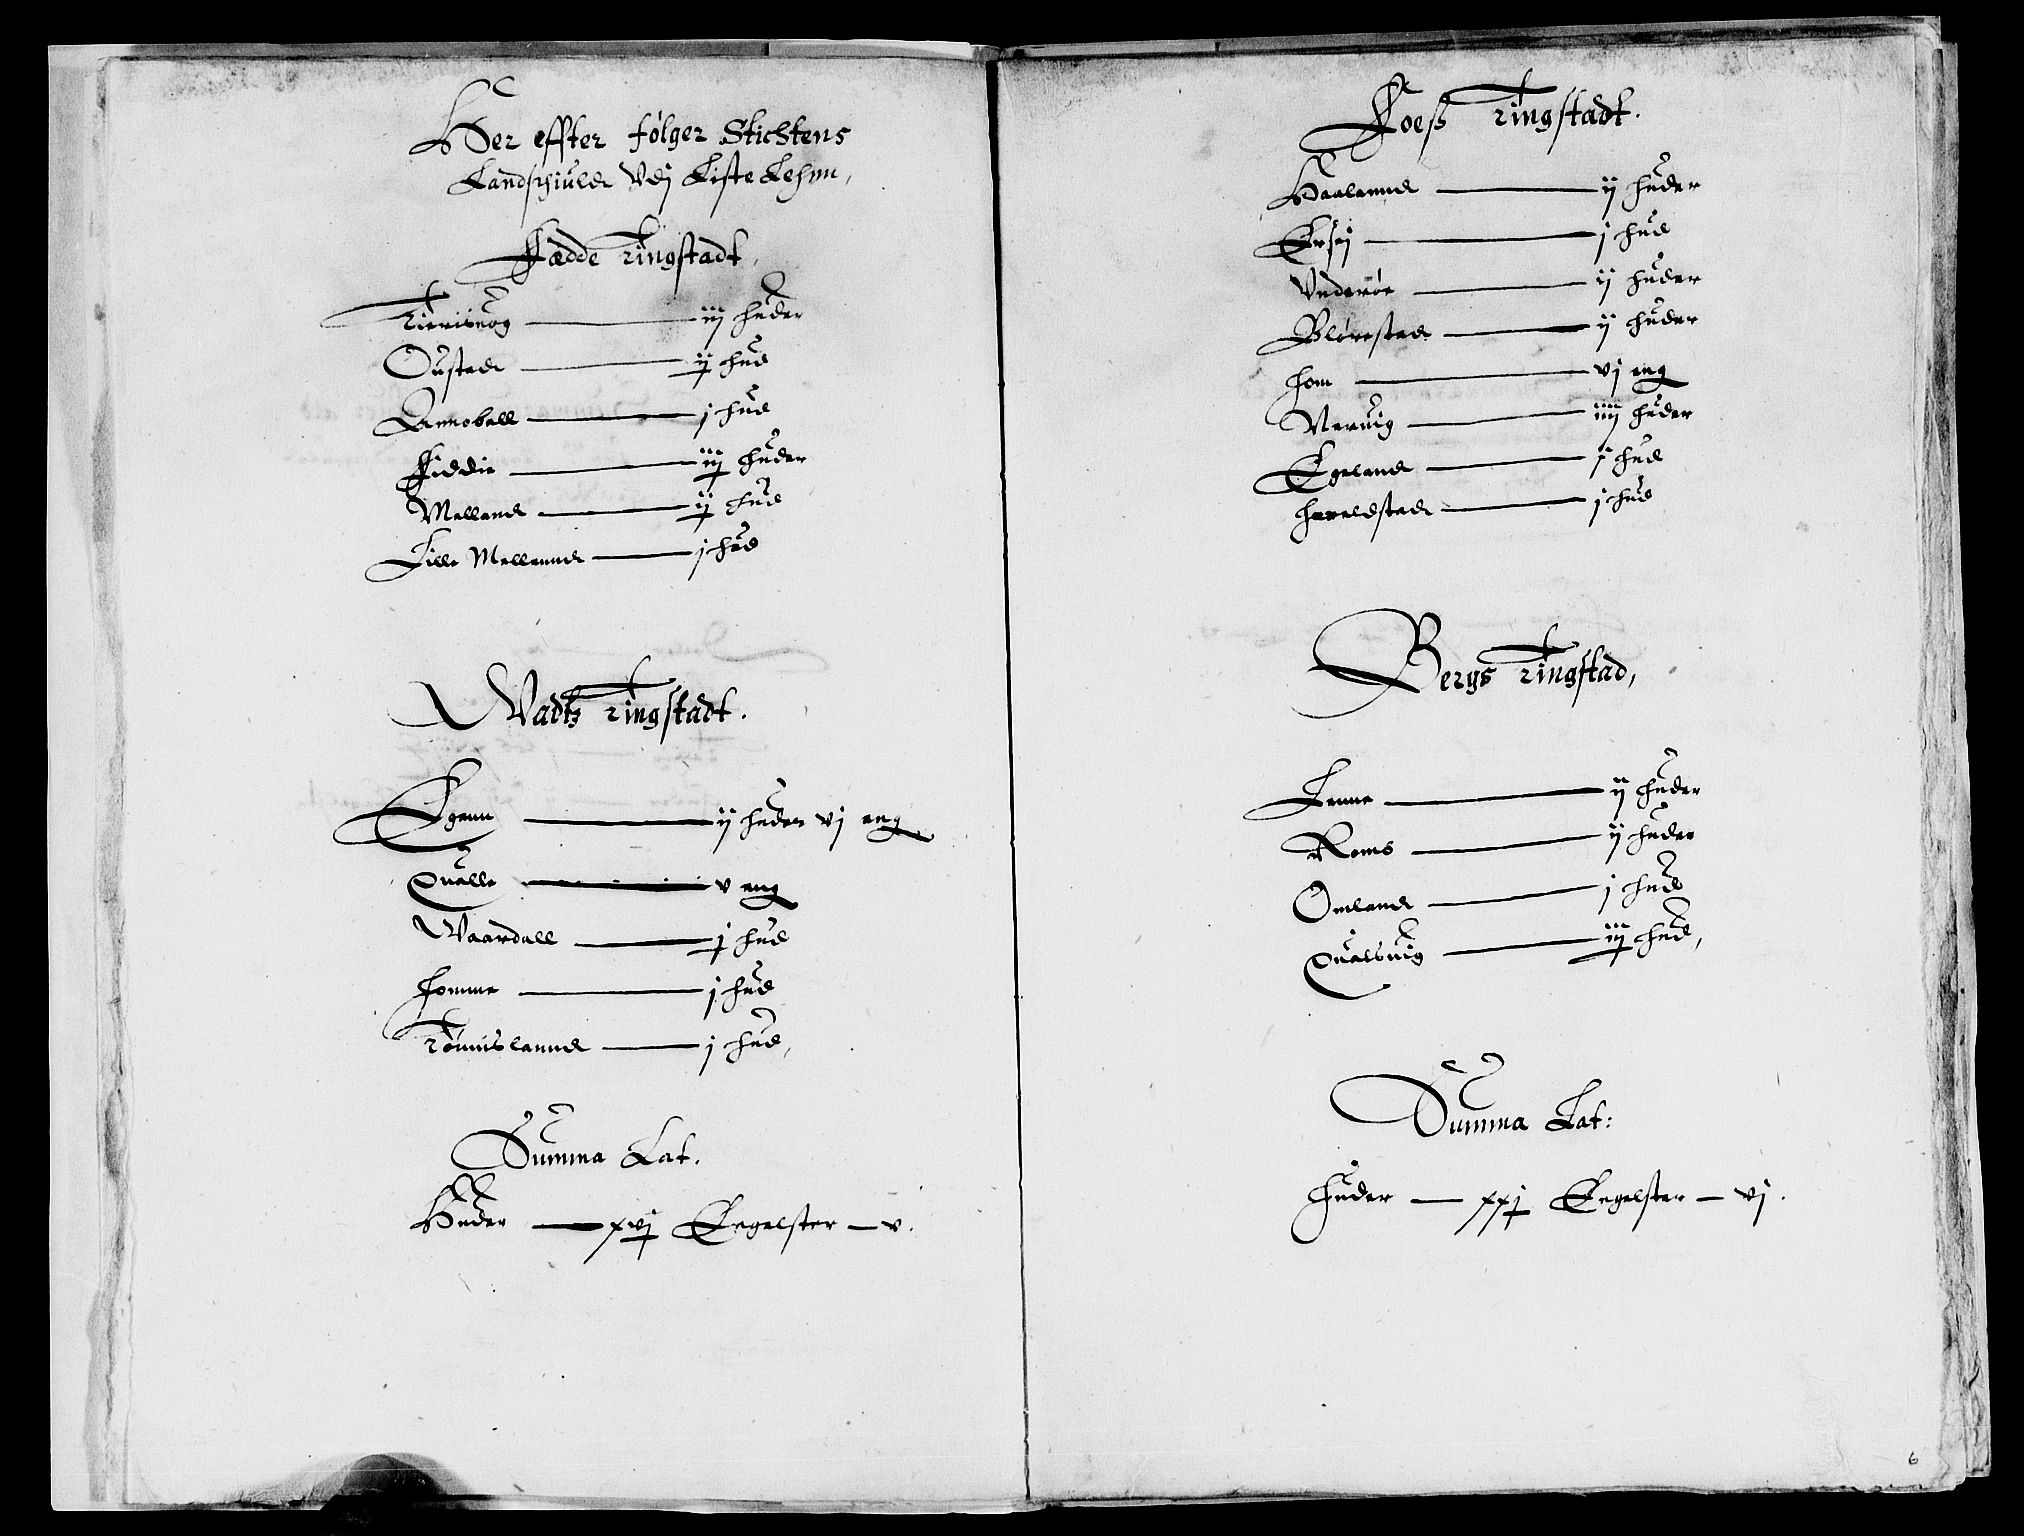 Her effter følger Stichtens
Landschiuld Vdj Liste Lehnn,
Fædde Tingstadt,
Tierisuog — iij huder
Oustad — ij hud
Annoball — j hud
Fiddie — iij huder
Melland — ij hud
Lille Mellannd — j hud
Wadts Tingstadt.
Egenn — ij huder vj eng
Qualle — v eng
Waardall — j hud
homme — j hud
Tønnislannd — j hud,
Summa Lat.
Huder — xvj Engelster — v.
Foeß Tingstadt.
Haalannd — ij huder
Ersej — j hud
Vnderøe — ij huder
Bлørestad — ij huder
hom — vj eng
Neruig — iiij huder
Egeland — j hud
hareldstad — j hud
Bergs Tingstad,
Lenne — ij huder
Roms — ij huder
Omland — j hud
Qualsuig — iij hud,
Summa Lat:
huder — xxj Engelster — vj.
6